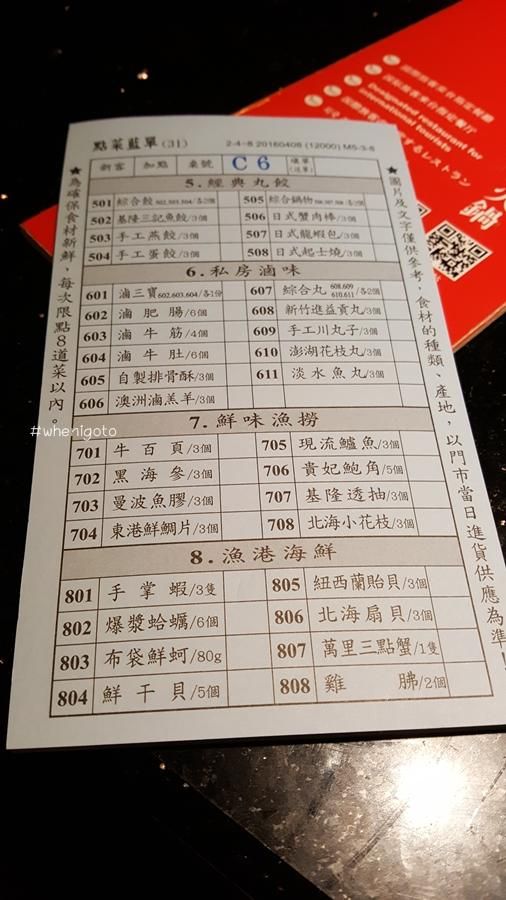 點菜藍單(31)
2-4-8 20160408 (12000) M5-3-6
新客 加點 桌號 C6
5.經典丸餃
501 綜合餃502.503.504/各2個 505 綜合鍋物506.507.508/各2個
502 基隆三記魚餃/3個 506 日式蟹肉棒/3個
503 手工燕餃/3個 507 日式龍蝦包/3個
504 手工蛋餃/3個 508 日式起士燒/3個
6.私房滷味
601 滷三寶602.603.604/各1份 607 綜合丸608.609 610.611/各2個
602 滷肥腸/6個 608 新竹進益貢丸/3個
603 滷牛筋/4個 609 手工川丸子/3個
604 滷牛肚/6個 610 澎湖花枝丸/3個
605 自製排骨酥/3個 611 淡水魚丸/3個
606 澳洲滷羔羊/3個
7.鮮味漁撈
701 牛百頁/3個 705 現流鱸魚/3個
702 黑海參/3個 706 貴妃鮑角/5個
703 曼波魚膠/3個 707 基隆透抽/3個
704 東港鮮鯛片/3個 708 北海小花枝/3個
8.漁港海鮮
801 手掌蝦/3隻 805 紐西蘭貽貝/3個
802 爆漿蛤蠣/6個 806 北海扇貝/3個
803 布袋鮮蚵/80g 807 萬里三點蟹/1隻
804 鮮干貝/5個 808 雞胇/2個
★為確保食材新鮮、每次限點8道菜以內。
★圖片及文字僅供參考，食材的種類、產地，以門市當日進貨供應為準！
#whenigoto
Designated restaurant for
international tourists
するレストラン
火鍋